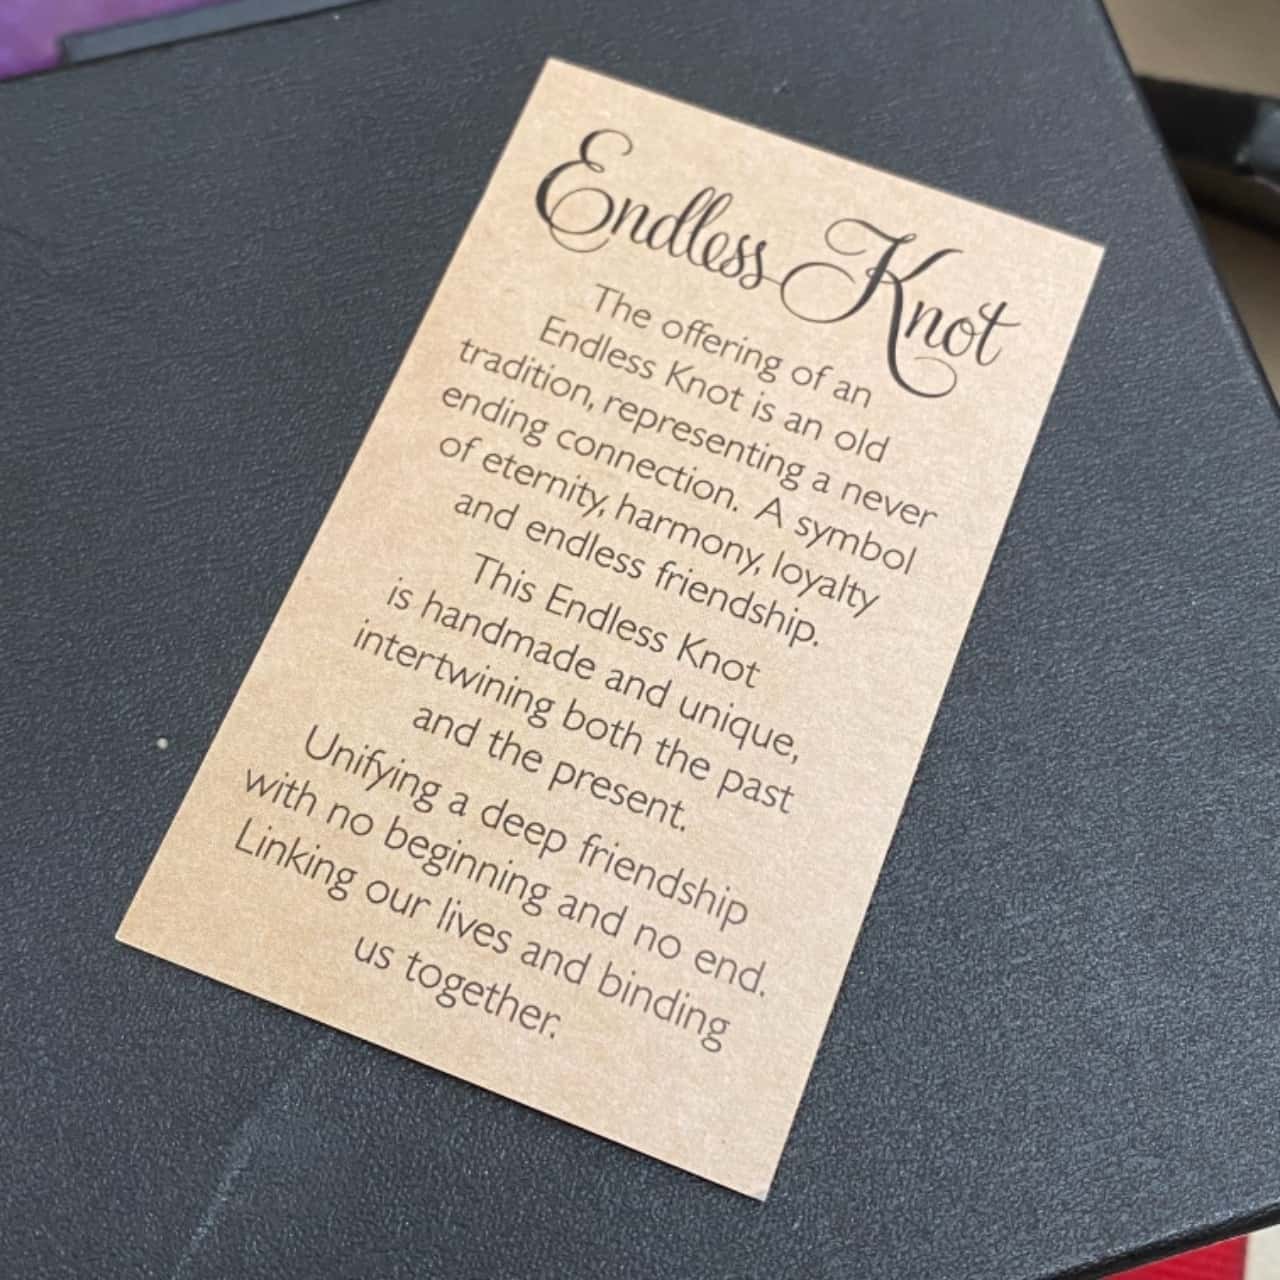 Endless Knot
The offering of an
Endless Knot is an old
tradition, representing a never
ending connection. A symbol
of eternity, harmony, loyalty
and endless friendship.
This Endless Knot
is handmade and unique,
intertwining both the past
and the present.
Unifying a deep friendship
with no beginning and no end.
Linking our lives and binding
us together.